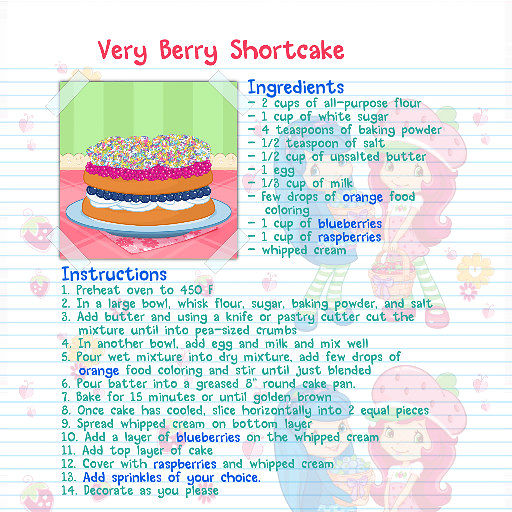 Very Berry Shortcake
Ingredients
- 2 cups of all-purpose flour
- 1 cup of white sugar
- 4 teaspoons of baking powder
- 1/2 teaspoon of salt
- 1/2 cup of unsalted butter
- 1 egg
- 1/3 cup of milk
- few drops of orange food
coloring
- 1 cup of blueberries
- 1 cup of raspberries
- whipped cream
Instructions
1. Preheat oven to 450 F
2. In a large bowl, whisk flour, sugar, baking powder, and salt
3. Add butter and using a knife or pastry cutter cut the
mixture until into pea-sized crumbs
4. In another bowl, add egg and milk and mix well
5. Pour wet mixture into dry mixture, add few drops of
orange food coloring and stir until just blended
6. Pour batter into a greased 8" round cake pan.
7. Bake for 15 minutes or until golden brown
8. Once cake has cooled, slice horizontally into 2 equal pieces
9. Spread whipped cream on bottom layer
10. Add a layer of blueberries on the whipped cream
11. Add top layer of cake
12. Cover with raspberries and whipped cream
13. Add sprinkles of your choice.
14. Decorate as you please